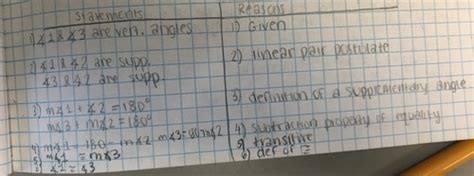 Statements Reasons
1) ∡1 & ∡3 are vert. angles 1) Given
2) ∡1 & ∡2 are supp. 2) linear pair postulate
∡3 & ∡2 are supp.
3) m∡1 + ∡2 = 180° 3) definition of a supplementary angle
m∡3 + m∡2 = 180°
4) m∡1 = 180 - m∡2 m∡3 = 180-m∡2 4) subtraction property of equality
5) m∡1 = m∡3 5) transitive
6) ∡1 ≅ ∡3 6) def of ≅